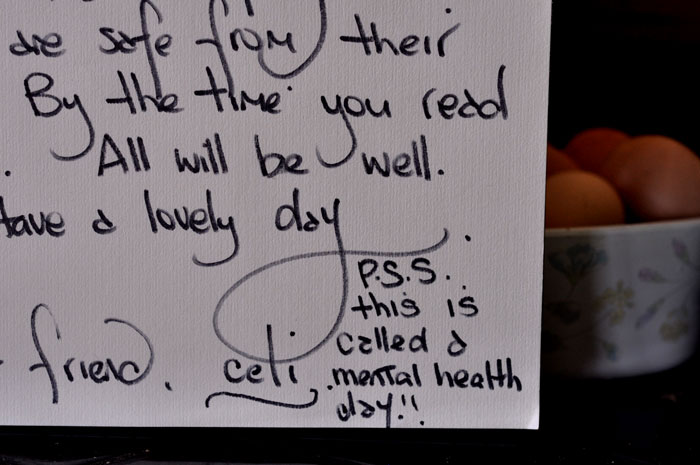 are safe from their
By the time you read
. All will be well.
Have a lovely day.
friend. celi
P.S.S.
this is
called a
mental health
day!!